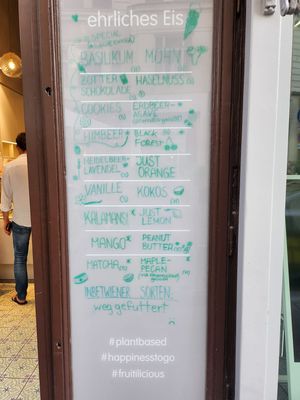 ehrliches Eis
SPECIAL
BASILIKUM MOHN
(V)
BITTER HASELNUSS (V)
SCHOKOLADE
COOKIES ERDBEER-
(V) AGAVE
HIMBEER* BLACK
FOREST (V)
HEIDELBEER* JUST
LAVENDEL ORANGE
VANILLE KOKOS
(V) (V)
KALAMANSI* JUST
LEMON
MANGO* PEANUT
BUTTER
MATCHA MAPLE-
(V) PECAN
INBETWIENER SORTEN:
weggefuttert
#plantbased
#happinesstogo
#fruitilicious